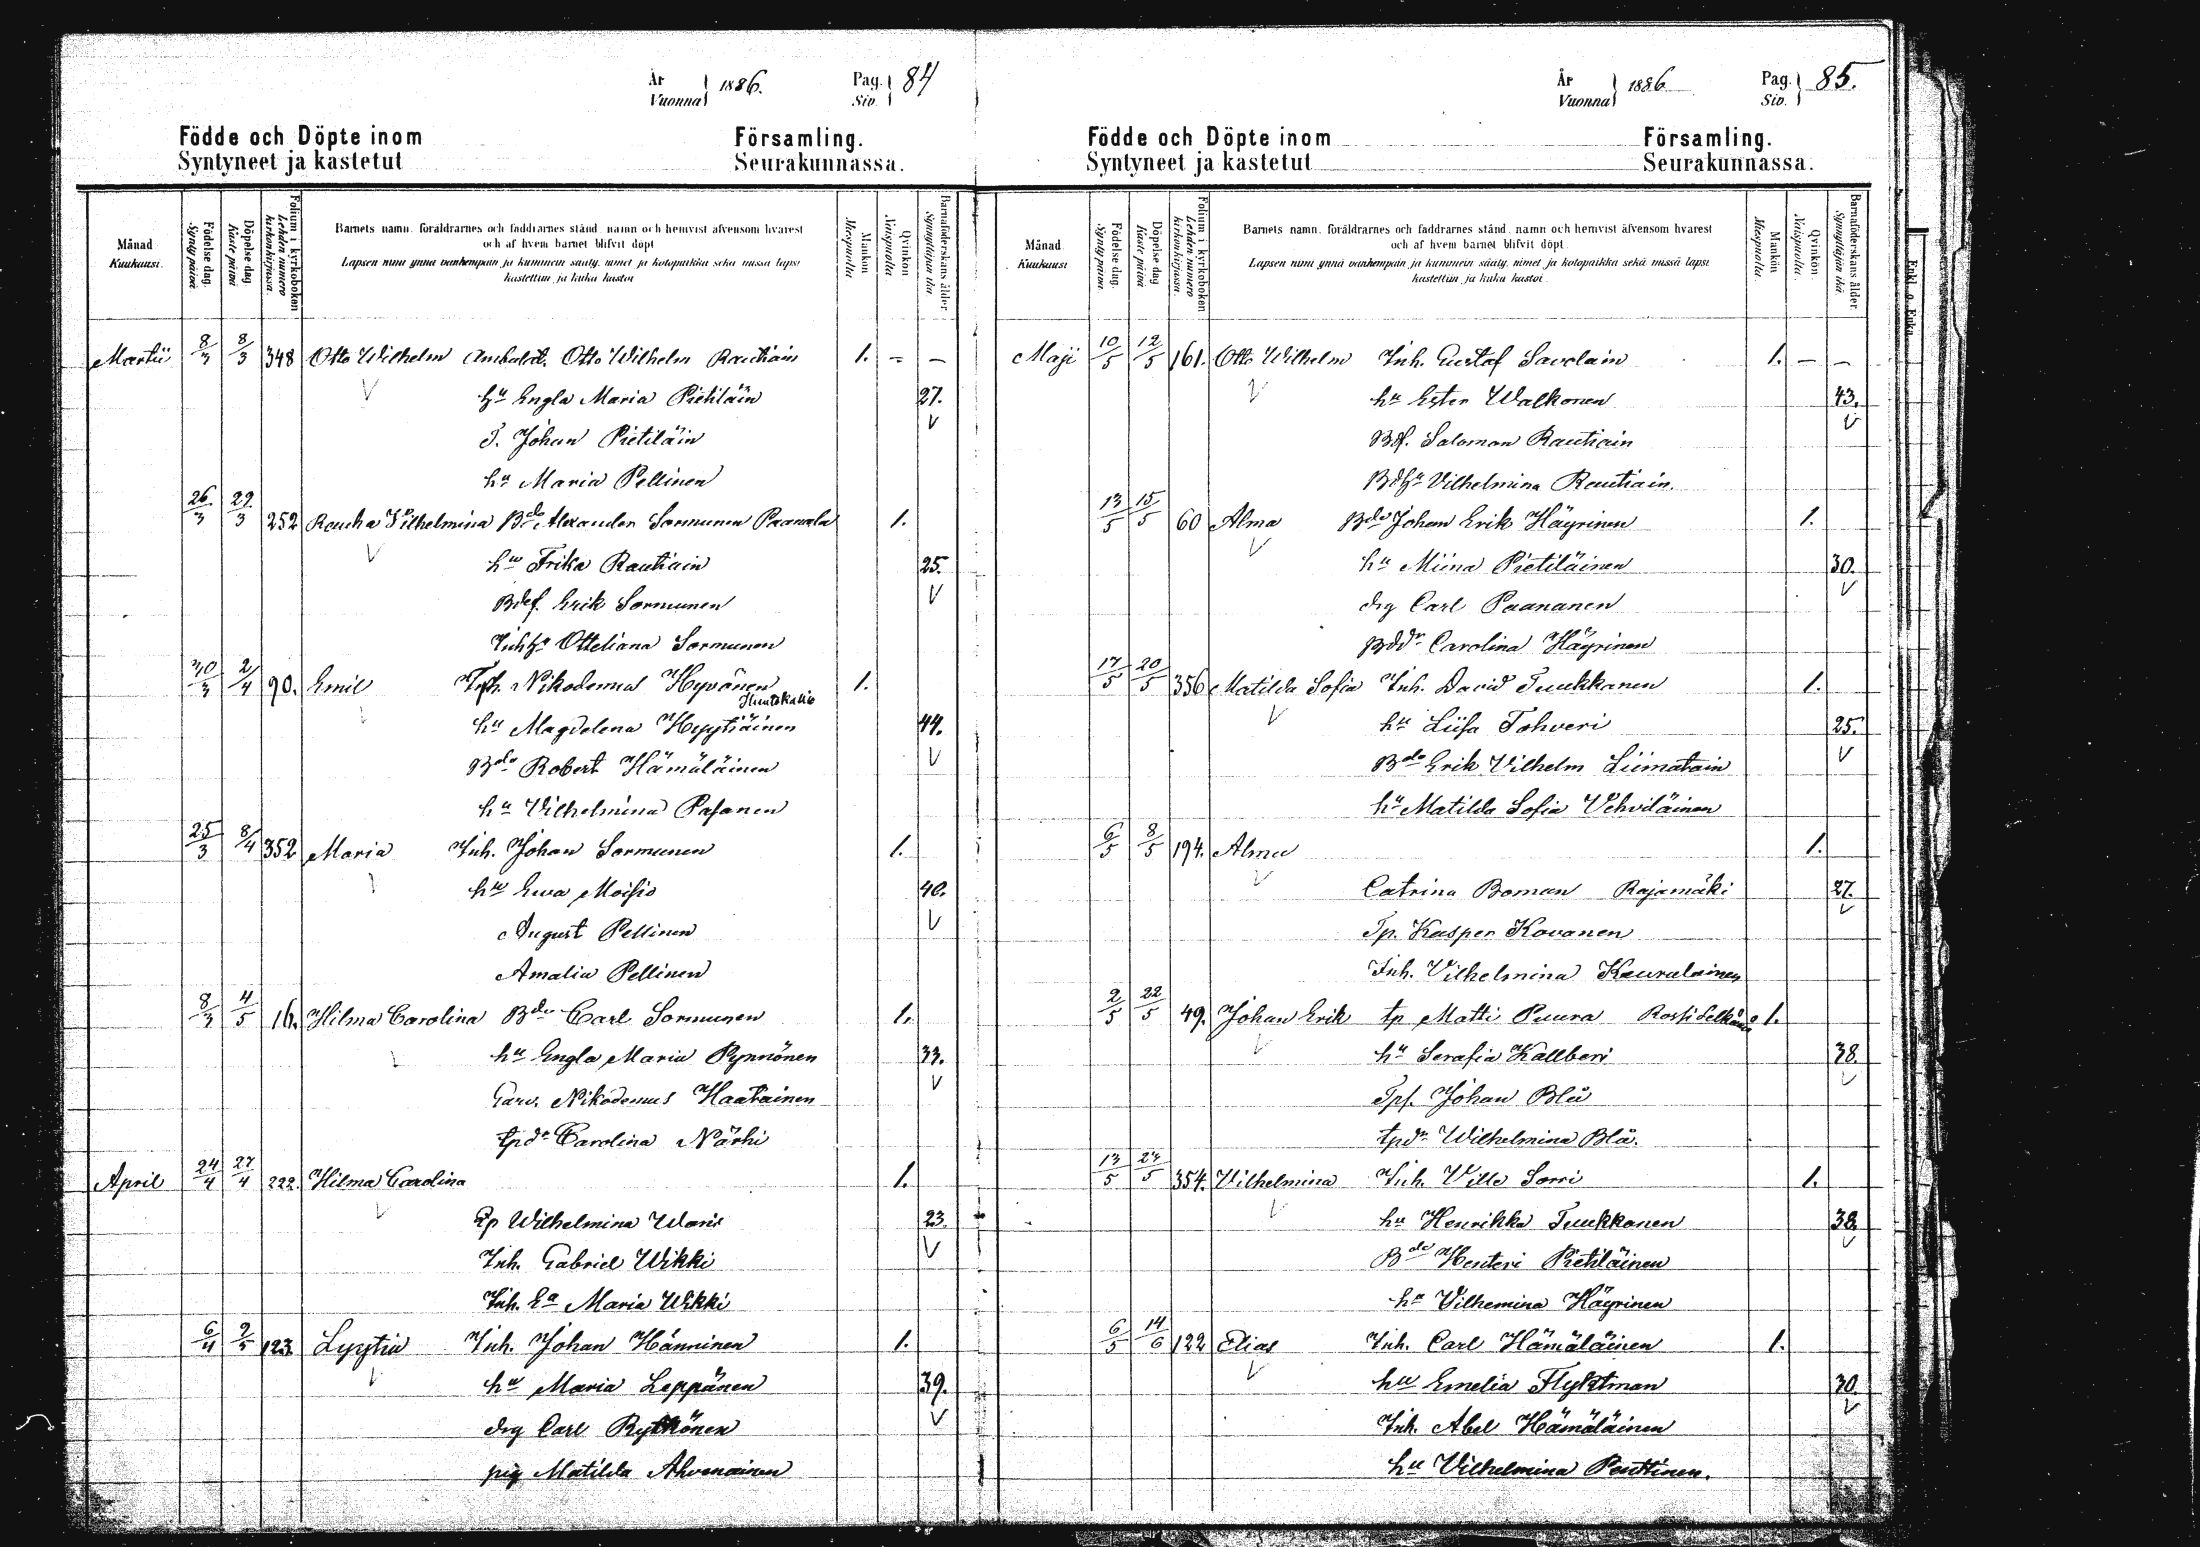 År
Vuonna } 1886.
Pag.
Siv. } 84
Födde och Döpte inom Församling.
Syntyneet ja kastetut Seurakunnassa.
Månad
Kuukausi.
Födelse dag.
Synty päivä
Döpelse dag
Kaste päivä
Folium i kyrkoboken
Lehden numero
kirkonkirjassa.
Barnets namn, föräldrarnes och faddrarnes stånd, namn och hemvist äfvensom hvarest
och af hvem barnet blifvit döpt
Lapsen nimi ynnä vanhempain ja kummein sääty, nimet ja kotopaikka sekä missä lapsi
kastettiin ja kuka kastoi
Mankön
Miespuolta
Qvinkön
Naispuolta.
Barnaföderskans ålder.
Synnyttäjän ikä
Martii 8/3 8/3 348 Otto Wilhelm Ambulat. Otto Wilhelm Rautiain 1. - -
hu Engla Maria Pietiläin 27.
T. Johan Pietiläin
hu Maria Pellinen
26/3 29/3 252 Rauha Vilhelmina Bde Alexander Sormunen Paanala 1.
hu Frika Rautiain 25.
Bdef. Erik Sormunen
Inhhu Otteliana Sormunen
30/3 2/4 90. Emil Inh. Nikodemus Hyvönen 1.
hu Magdelena Hyytiäinen 44.
Bde Robert Hämäläinen
hu Vilhelmina Pasanen
25/3 8/4 352 Maria Inh. Johan Sormunen 1.
hu Ewa Moisio 40.
August Pellinen
Amalia Pellinen
8/3 4/5 16. Hilma Carolina Bde Carl Sormunen 1.
hu Engla Maria Pynnönen 33.
Garv. Nikodemus Haatainen
tpdr Carolina Närhi
April 24/4 27/4 222. Hilma Carolina 1.
Ep Wilhelmina Waris 23.
Inh. Gabriel Wikki
Inh. Ea Maria Wikki
6/4 9/5 123. Lyytia Inh. Johan Hänninen 1.
hu Maria Leppänen 39.
drg Carl Rytkönen
pig Matilda Ahvenainen
År
Vuonna } 1886
Pag.
Siv. } 85.
Födde och Döpte inom Församling.
Syntyneet ja kastetut Seurakunnassa.
Månad
Kuukausi
Födelse dag.
Synty päivä.
Döpelse dag
Kaste päivä
Folium i kyrkoboken
Lehden numero
kirkonkirjassa.
Barnets namn, föräldrarnes och faddrarnes stånd, namn och hemvist äfvensom hvarest
och af hvem barnet blifvit döpt
Lapsen nimi ynnä vanhempain ja kummein sääty, nimet ja kotopaikka sekä missä lapsi
kastettiin ja kuka kastoi
Mankön
Miespuolta.
Qvinkön
Naispuolta.
Barnaföderskans ålder
Synnyttäjän ikä
Maji 10/5 12/5 161. Otto Wilhelm Inh. Gustaf Savolain 1. - -
hu Ester Walkonen 43.
Bdf. Salomon Rautiain
Bdhu Vilhelmina Rautiain.
13/5 15/5 60 Alma Bde Johan Erik Häyrinen 1.
hu Miina Pietiläinen 30.
drg Carl Paananen
Bddr Carolina Häyrinen
17/5 20/5 356 Matilda Sofia Inh. David Tuukkanen 1.
hu Liisa Tohveri 25.
Bde Erik Vilhelm Liimatain
hu Matilda Sofia Vehviläinen
6/5 8/5 194. Alma 1.
Catrina Boman Rajamäki 27.
Tp. Kasper Kovanen
Inh. Vilhelmina Kauralainen
2/5 22/5 49. Johan Erik tp Matti Puura 1.
hu Serafia Kallberi 38.
Tpf. Johan Blå
tpdr Wilhelmina Blå.
13/5 23/5 354. Vilhelmina Inh. Ville Sorri 1.
hu Henrikka Tuukkanen 38.
Bde Henteri Pietiläinen
hu Vilhemina Häyrinen
6/5 14/6 122 Elias Inh. Carl Hämäläinen 1.
hu Emelia Flyktman 30.
Inh. Abel Hämäläinen
hu Vilhelmina Penttinen.